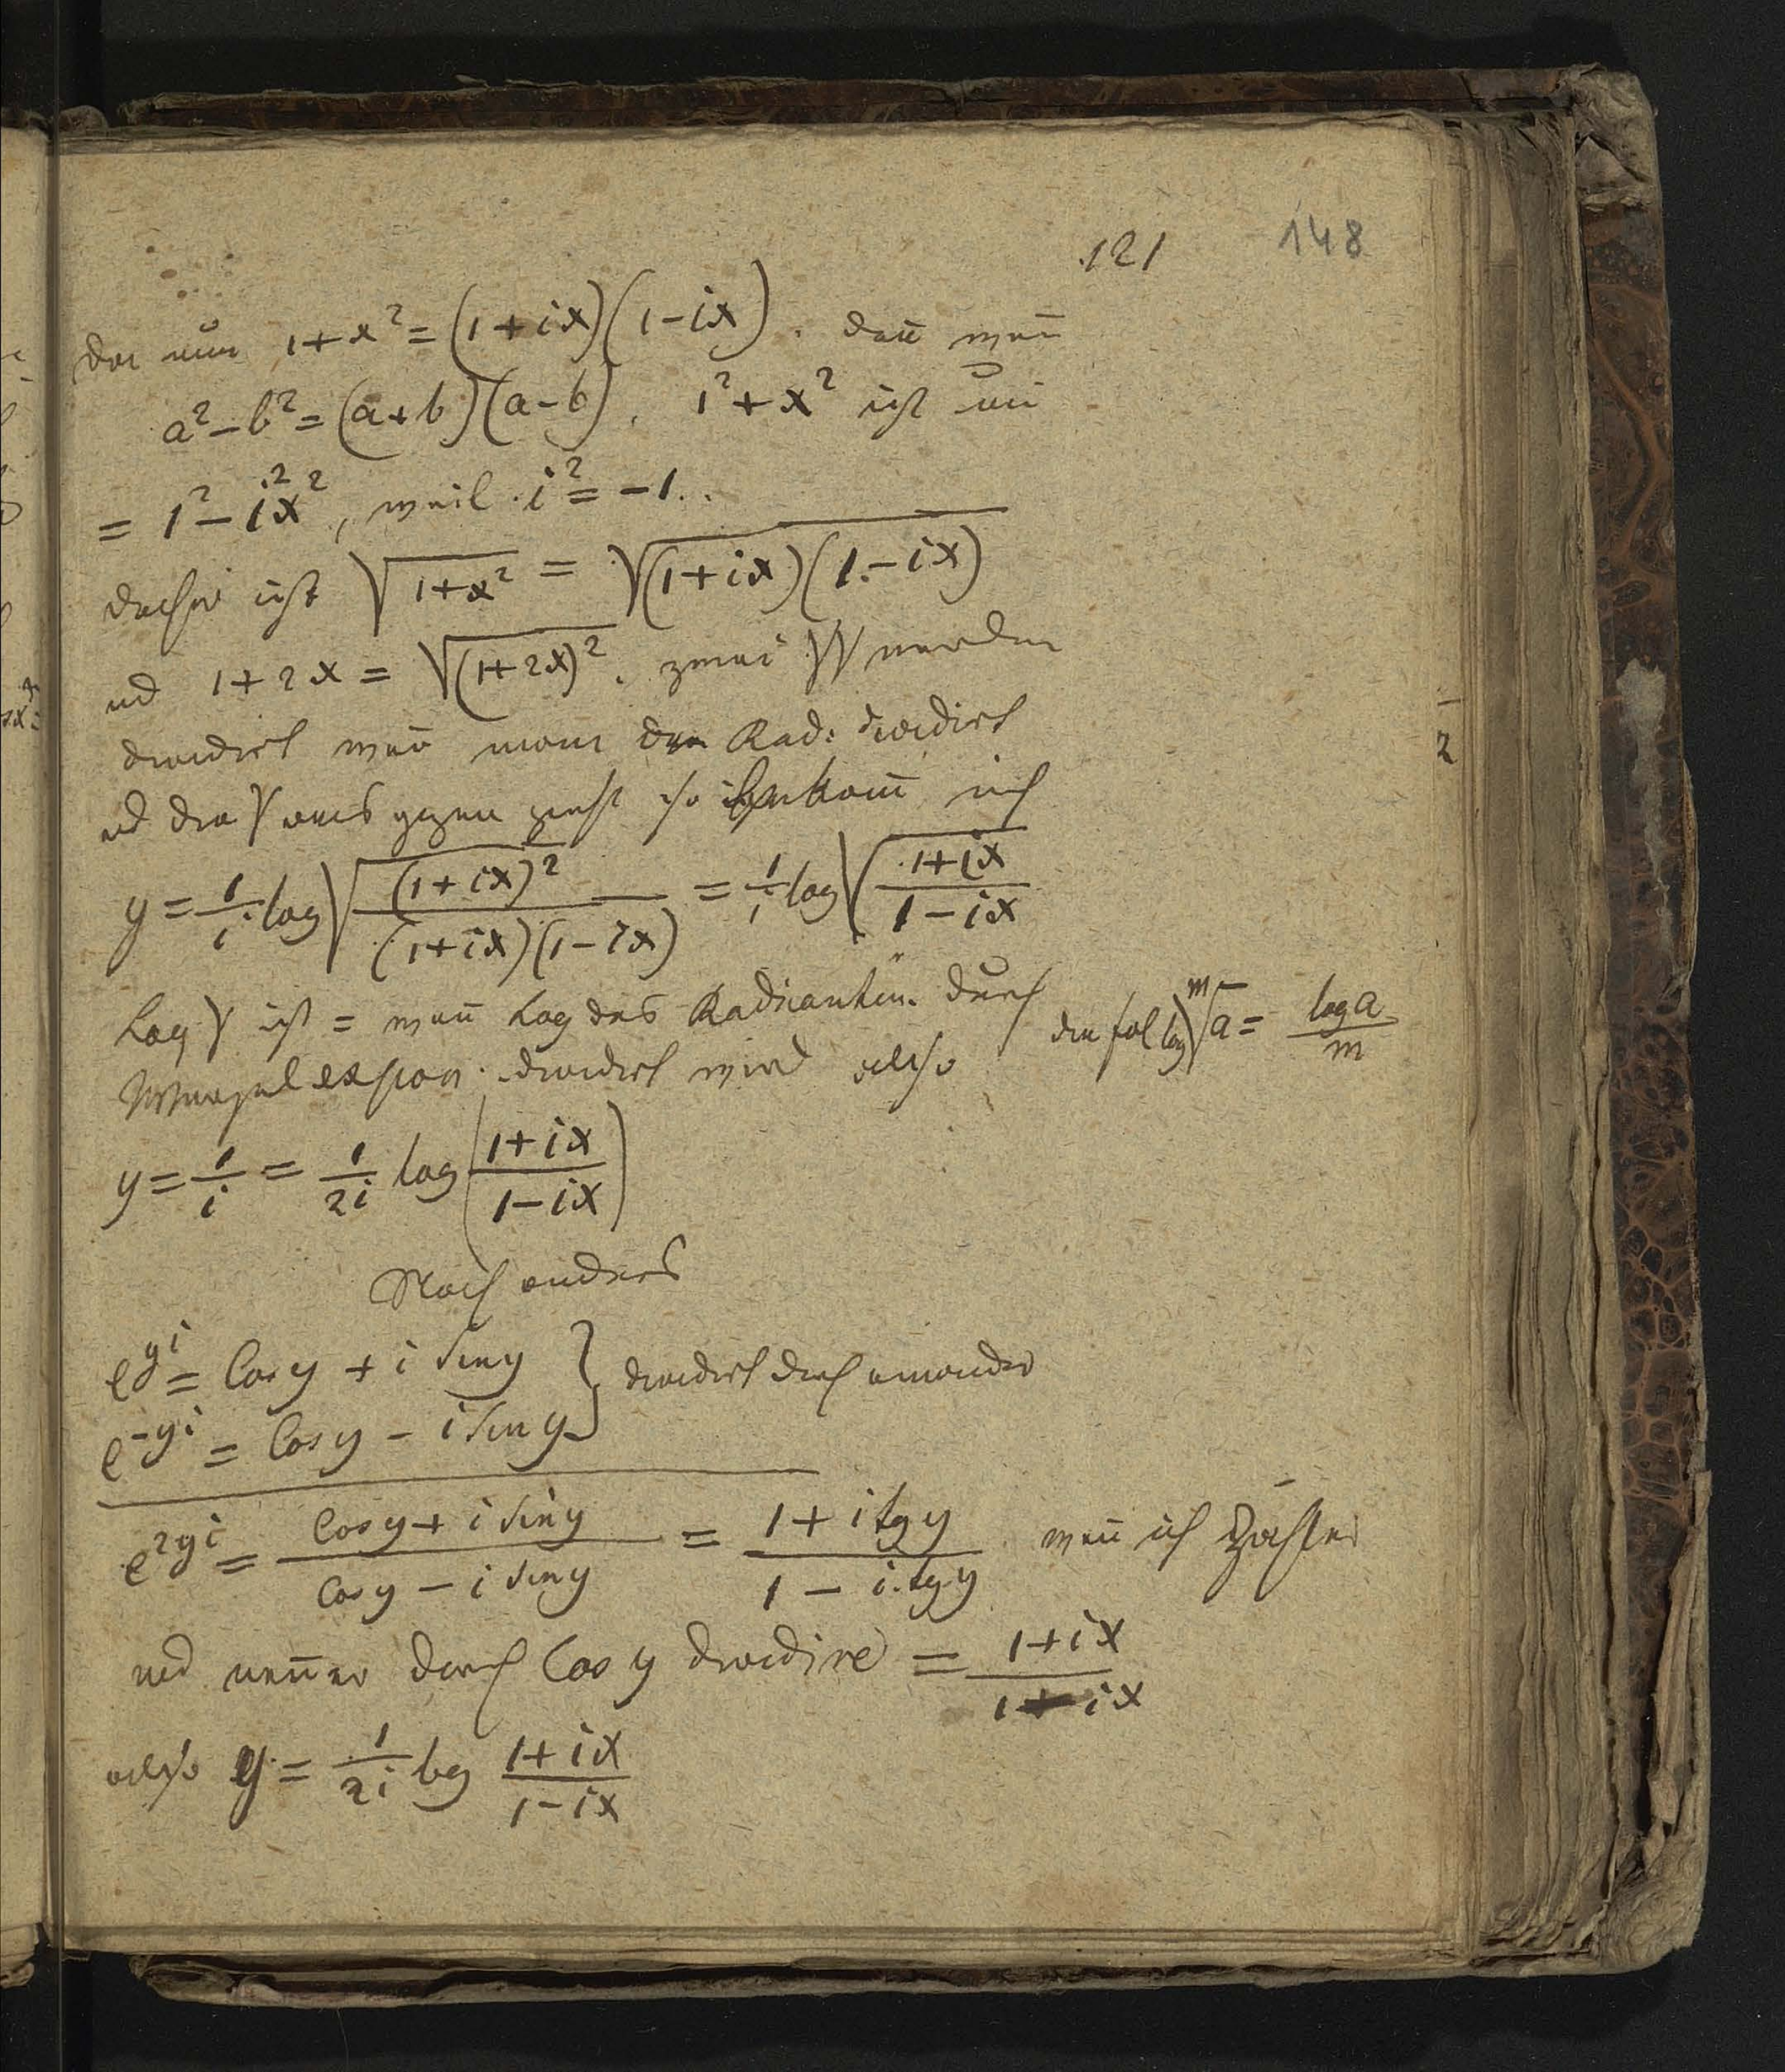 121 148
da nun 1+x² = (1+ix)(1-ix). dañ wañ
a²-b² = (a+b)(a-b). 1²+x² ist wie
= 1²-i²x², weil i² = -1.
daher ist √(1+x²) = √((1+ix)(1-ix))
ud 1+2x = √((1+2x)²). zwei √√ werden
dividirt weñ man den Rad: dividirt
ud die √ aus zieht so bekom̄ ich
y = 1/i log √((1+ix)²/((1+ix)(1-ix))) = 1/i log √((1+ix)/(1-ix))
Log √ ist = weñ Log des Radicanten durch
Wurzelexpon. dividirt wird also
log ᵐ√a = log a/m
y = 1/i = 1/2i log ((1+ix)/(1-ix))
Noch anders
e^{yi} = Cos y + i Sin y } dividirt durch einander
e^{-yi} = Cos y - i Sin y
e^{2yi} = (Cos y + i Sin y)/(Cos y - i Sin y) = (1 + i tg y)/(1 - i. tg y) weñ ich Zähler
ud neñer durch Cos y dividire = (1+ix)/(1-ix)
also y = 1/2i log (1+ix)/(1-ix)
2